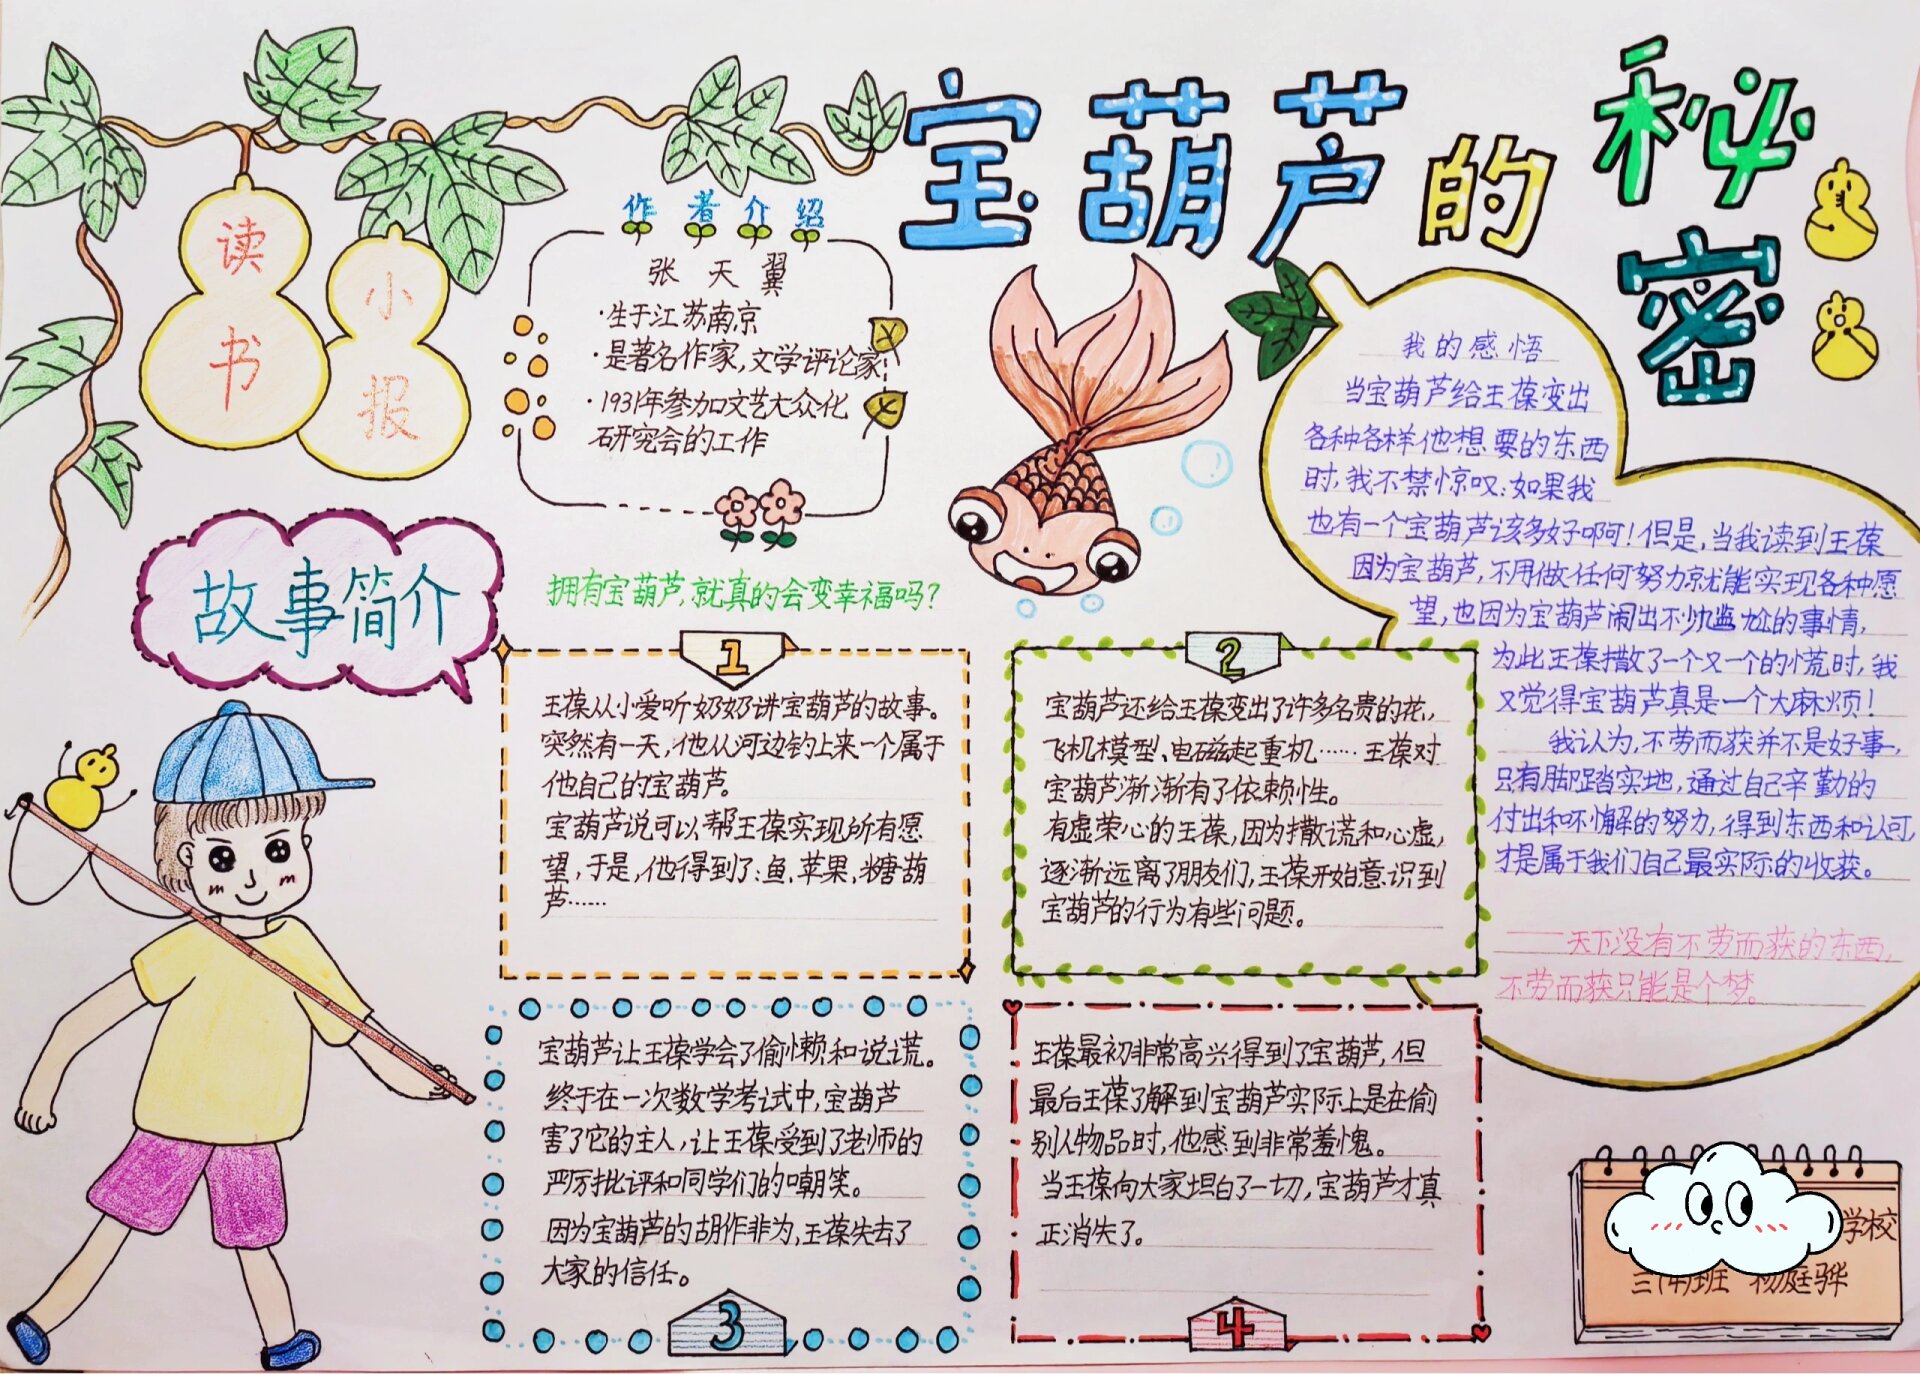 宝葫芦的秘密
读书
小报
作者介绍
张天翼
·生于江苏南京
·是著名作家,文学评论家
·1931年参加文艺大众化
研究会的工作
故事简介
拥有宝葫芦,就真的会变幸福吗?
1
王葆从小爱听奶奶讲宝葫芦的故事。
突然有一天,他从河边钓上来一个属于
他自己的宝葫芦。
宝葫芦说可以帮王葆实现所有愿
望,于是,他得到了:鱼、苹果、糖葫
芦……
2
宝葫芦还给王葆变出了许多名贵的花,
飞机模型、电磁起重机……王葆对
宝葫芦渐渐有了依赖性。
有虚荣心的王葆,因为撒谎和心虚,
逐渐远离了朋友们,王葆开始意识到
宝葫芦的行为有些问题。
宝葫芦让王葆学会了偷懒和说谎。
终于在一次数学考试中,宝葫芦
害了它的主人,让王葆受到了老师的
严厉批评和同学们的嘲笑。
因为宝葫芦的胡作非为,王葆失去了
大家的信任。
3
王葆最初非常高兴得到了宝葫芦,但
最后王葆了解到宝葫芦实际上是在偷
别人物品时,他感到非常羞愧。
当王葆向大家坦白了一切,宝葫芦才真
正消失了。
4
我的感悟
当宝葫芦给王葆变出
各种各样他想要的东西
时,我不禁惊叹:如果我
也有一个宝葫芦该多好啊!但是,当我读到王葆
因为宝葫芦,不用做任何努力就能实现各种愿
望,也因为宝葫芦闹出不少尴尬的事情,
为此王葆撒了一个又一个的慌时,我
又觉得宝葫芦真是一个大麻烦!
我认为,不劳而获并不是好事,
只有脚踏实地,通过自己辛勤的
付出和不懈的努力,得到东西和认可,
才是属于我们自己最实际的收获。
——天下没有不劳而获的东西,
不劳而获只能是个梦。
学校
班 杨庭骅